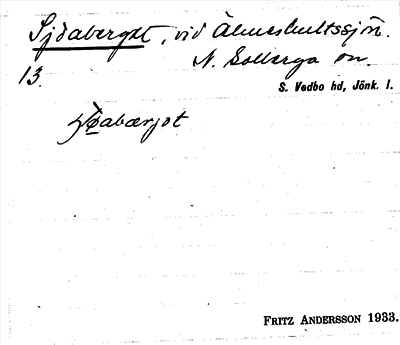 Sjöaberget, vid Älmeshultssjön.
N. Solberga sn.
13.
S. Vedbo hd, Jönk. l.
FRITZ ANDERSSON 1933.